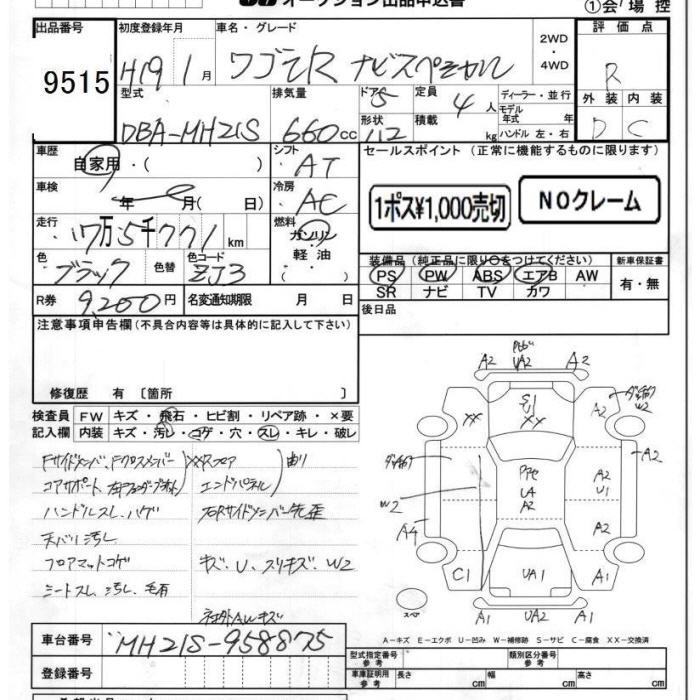 オークション出品申込書
①会場控
出品番号 初度登録年月 車名・グレード 2WD・4WD 評価点
9515 H19 1月 ワゴンR ナビスペシャル R
型式 排気量 ドア 定員 ディーラー・並行 外装 内装
DBA-MH21S 660cc 5 4人 モデル年式 年式 D C
形状 積載 kg ハンドル 左・右
車歴 シフト セールスポイント (正常に機能するものに限ります)
自家用・( ) AT
車検 冷房
年 月( 日) AC 1ポス¥1,000売切 NOクレーム
走行 燃料
17万5千771km ガソリン・軽油
色 色替 色コード 装備品(純正品に限り○をつけてください) 新車保証書
ブラック ZJ3 PS PW ABS エアB AW 有・無
SR ナビ TV カワ
R券 9,200円 名変通知期限 月 日 後日品
注意事項申告欄(不具合内容等は具体的に記入して下さい)
修復歴 有 〔箇所 〕
検査員 FW キズ・飛石・ヒビ割・リペア跡・×要
記入欄 内装 キズ・汚レ・コゲ・穴・スレ・キレ・破レ
Fサイドメンバ、Fクロスメンバー XXRフロア 曲り
コアサポート エンドパネル
ハンドルスレ、ハゲ 右Rサイドメンバー先歪
天バリ汚レ
フロアマットコゲ キズ、U、スリキズ、W2
シートスレ、汚レ、毛有
社外AWキズ
A2 UA2 A2
XX S U1 XX A2 W2
A2
A2 U1
UA A2
W2
A4 A2
C1 UA1 A1
スペア A1 UA2 A1
A-キズ E-エクボ U-凹み W-補修跡 S-サビ C-腐食 XX-交換済
車台番号 MH21S-958875
登録番号
型式指定番号 参考 類別区分番号 参考
車庫証明用 参考 長さ cm 幅 cm 高さ cm